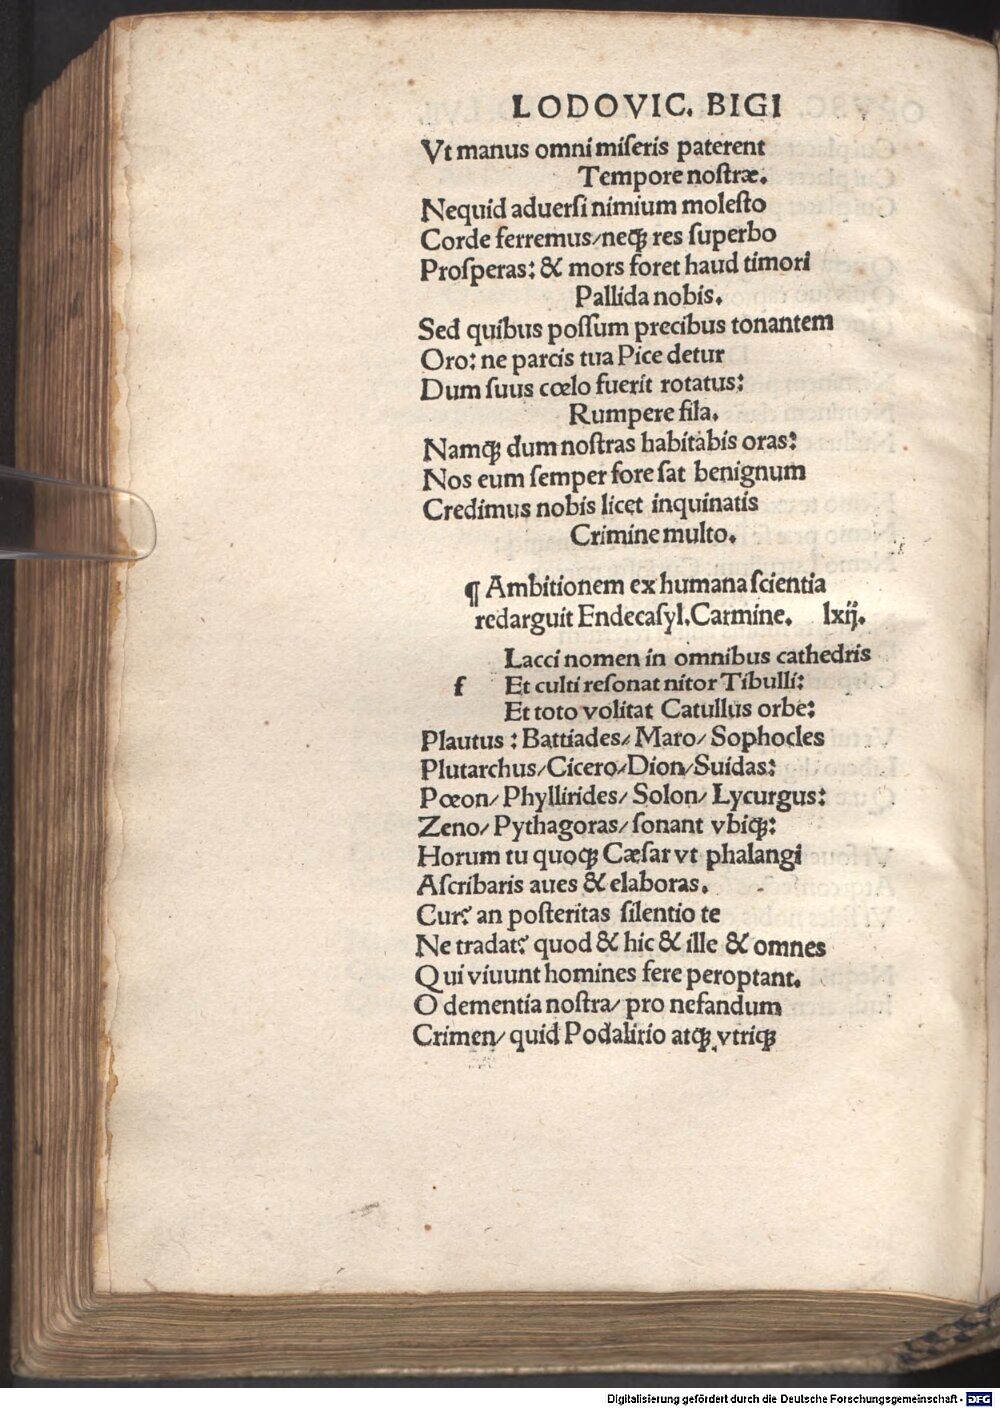 LODOVIC. BIGI
Vt manus omni miſeris paterent
Tempore noſtræ.
Nequid aduerſi nimium moleſto
Corde ferremus/neqꝫ res ſuperbo
Proſperas: & mors foret haud timori
Pallida nobis.
Sed quibus poſſum precibus tonantem
Oro: ne parcis tua Pice detur
Dum ſuus cœlo fuerit rotatus:
Rumpere fila.
Namqꝫ dum noſtras habitabis oras:
Nos eum ſemper fore ſat benignum
Credimus nobis licet inquinatis
Crimine multo.
¶ Ambitionem ex humana ſcientia
redarguit Endecaſyl. Carmine. lxij.
Lacci nomen in omnibus cathedris
f Et culti reſonat nitor Tibulli:
Et toto volitat Catullus orbe:
Plautus: Battiades/ Maro/ Sophocles
Plutarchus/Cicero/Dion/Suidas:
Pœon/ Phyllirides/ Solon/ Lycurgus:
Zeno/ Pythagoras/ ſonant vbiqꝫ:
Horum tu quoqꝫ Cæſar vt phalangi
Aſcribaris aues & elaboras.
Cur? an poſteritas ſilentio te
Ne tradat? quod & hic & ille & omnes
Qui viuunt homines fere peroptant.
O dementia noſtra/ pro nefandum
Crimen/ quid Podalirio atqꝫ vtriqꝫ
Digitalisierung gefördert durch die Deutsche Forschungsgemeinschaft - DFG